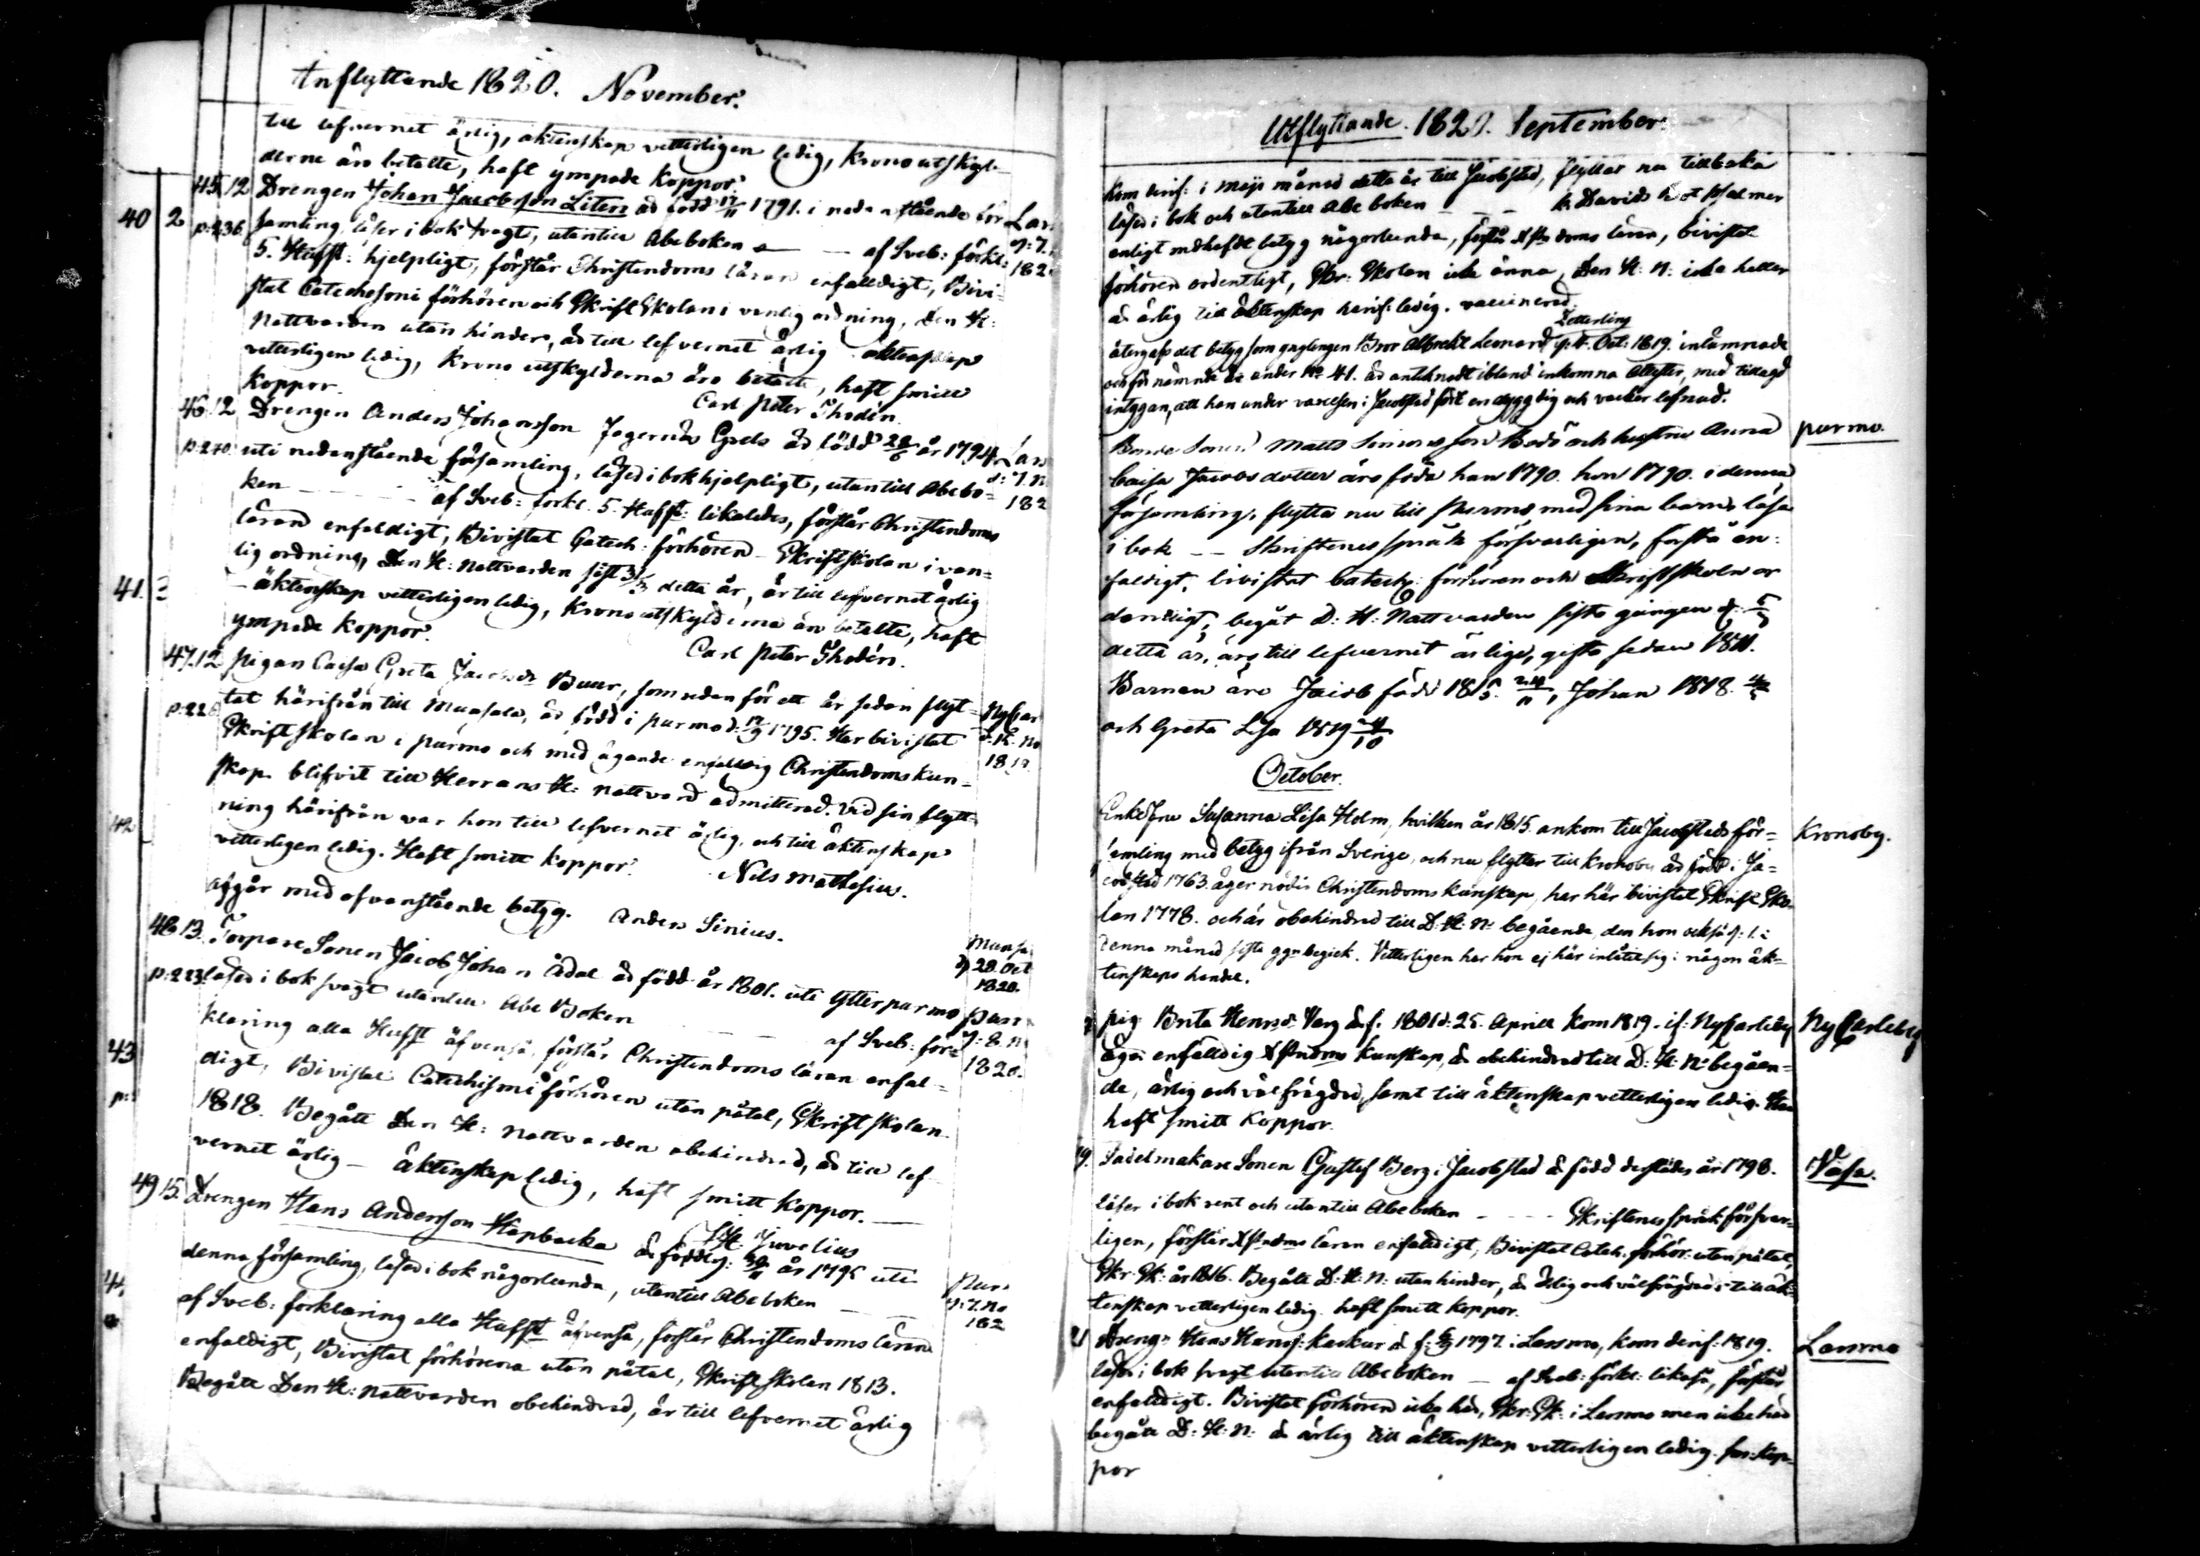 Inflyttande 1820. November.
till lefvernet ärlig, äktenskap vetterligen ledig, kronoutskyl-
derne äro betalte, haft ympade koppor.
45. 12 Drengen Johan Jacobsson Liten är född 17/11 1791. i nedanstående för
40 2 p: 236 samling, läser i bok svagt, utantill Abeboken — af Sveb: förkl:
5. Hufst: hjelpligt, förstår Christendoms läran enfalldigt, Bivi-
stat Catechesoni förhören och Skrift Skolan i vanlig ordning, Den H:
Nattvarden utan hinder, är till lefvernet ärlig äktenskap
vetterligen ledig, Krono utskylderna äro betalte, haft smitt
koppor.
Carl Peter Thodén.
46. 12 Drengen Anders Johansson Jägernäs Grels är född 28/6 år 1794
p: 240. uti nedanstående församling, läser i bok hjelpligt, utantill Abebo-
ken — af Sveb: förkl. 5. Hufst: likaledes, förstår Christendoms
läran enfaldigt, Bivistat Catech: förhören - Skriftskolan i van-
lig ordning, Den H: Nattvarden sist detta år, är till lefvernet ärlig
41. - äktenskap vetterligen ledig, Krono utskylderna äro betalte, haft
ympade koppor.
Carl Peter Thodén.
47. 12 Pigan Caisa Greta Jacobsdr Buur, som sedan för ett år sedan flyt-
tat härifrån till Munsala, är född i purmo d: 12/9 1795. Har bivistat
Skriftskolan i purmo och med ägande enfaldig Christendoms kun-
skap blifvit till Herrans H: Nattvard admitterad. Vid sin flytt-
42 ning härifrån var hon till lefvernet ärlig och till äktenskap
vetterligen ledig. Haft smitt koppor.
Nils Mathesius.
afgår med ofvanstående betyg. Anders Sinius.
48. 13. Torpare Sonen Jacob Johan Ådal är född år 1801. uti Ytterpurmo
p: 223. läser i bok svagt utantill Abe Boken — af Sveb: för-
klaring alla Hufst äfvenså, förstår Christendoms läran enfal-
43 digt, Bivistat Catechismi förhören utan påtal, Skriftskolan
1818. Begått Den H: Nattvarden obehindrad, är till lef-
vernet ärlig - äktenskap ledig, haft smitt koppor. —
Juvelius
49 15. Drengen Hans Andersson Knapbacka är född d: 30/11 år 1795 uti
denna församling, läser i bok någorlunda, utantill Abeboken —
af Sveb: förklaring alla Hufst äfvenså, förstår Christendoms läran
enfaldigt, Bivistat förhören utan påtal, Skriftskolan 1813.
Begått Den H: Nattvarden obehindrad, är till lefvernet ärlig
Utflyttande. 1820. September.
Kom hit: i Maji månad detta år till Jacobstad, flyttar nu tillbaka
läser i bok och utantill Abe boken — K. Davids bot psalmer
enligt medhafdt betyg någorlunda, förstår Xstndoms läran, bivistat
förhören ordentligt, Skr: Skolan icke ännu, Den H: N: icke heller
är ärlig till äktenskap härif: ledig. vaccinerad.
Zetterling
återgafs det betyg som ynglingen Bror Albrecht Leonard d: Oct: 1819. inlämnade
och för nämnde år under No 41. är anteknadt ibland inkomna Attester, med tillagd
intygan, att han under varelsen i Jacobstad fört en dygdig och vacker lefnad.
Bonde Sonen Matts Simonsson Bods och hustru Anna purmo.
Caisa Jacobsdotter äro föda han 1790. hon 1790. i denna
församling, flytta nu till Purmo med sina barn, läsa
i bok — Skriftenes språk försvarligen, förstå en-
faldigt, bivistat Catech: förhören och Skriftskola or
dentligt, begåt D: H: Nattvarden sista gången d: 5/5
detta år, äro till lefvernet ärlige, gifta sedan 1811.
Barnen äro Jacob född 1815. 24/11, Johan 1818. 4/5
och Greta Lisa 1819 24/10
October.
Enke fru Susanna Lisa Holm, hvilken år 1815. ankom till Jacobstads för- Kronoby.
samling med betyg ifrån Sverige, och nu flytter till Kronoby är född i Ja-
cobstad 1763. äger nödig Christendoms kunskap, har här bivistat Skrift Sko-
lan 1778. och är obehindrad till D: H: N: begående, den hon också d: 1.
denna månad sista ggn begick. Vetterligen har hon ej här inlåtit sig i någon äk-
tenskaps handel.
pig Brita Henrsdr Varg är f. 1801 d: 25. Aprill kom 1819. if: NyCarleby NyCarleby
äger enfalldig Xstndoms kunskap, är obehindrad till D: H: N: begåen-
de, ärlig och välfrägdad, samt till äktenskap vetterligen ledig. Har
haft smitt koppor.
19. Sadelmakare Sonen Gustaf Berg i Jacobstad är född derstädes år 1798. Vasa.
läser i bok rent och utantill Abeboken — Skriftenes språk försvar-
ligen, förstår Xstndms läran enfalldigt, Bivistat Catech. förhör. utan påtal,
Skr: Sk: år 1816. Begått D: H: N: utan hinder, är ärlig och välfrägdad - till äk-
tenskap vetterligen ledig. haft smitt koppor.
21 Dreng: Hans Hanss: Kackur är f: 6/9 1797. i Larsmo, kom derif: 1819. Larsmo
läser i bok svagt utantill Abe boken — af Sveb: förkl: likaså, förstår
enfalldigt. Bivistat förhören icke här, Skr: Sk: i Larsmo men icke här
begått D: H: N: är ärlig till äktenskap vetterligen ledig. har: kop-
por